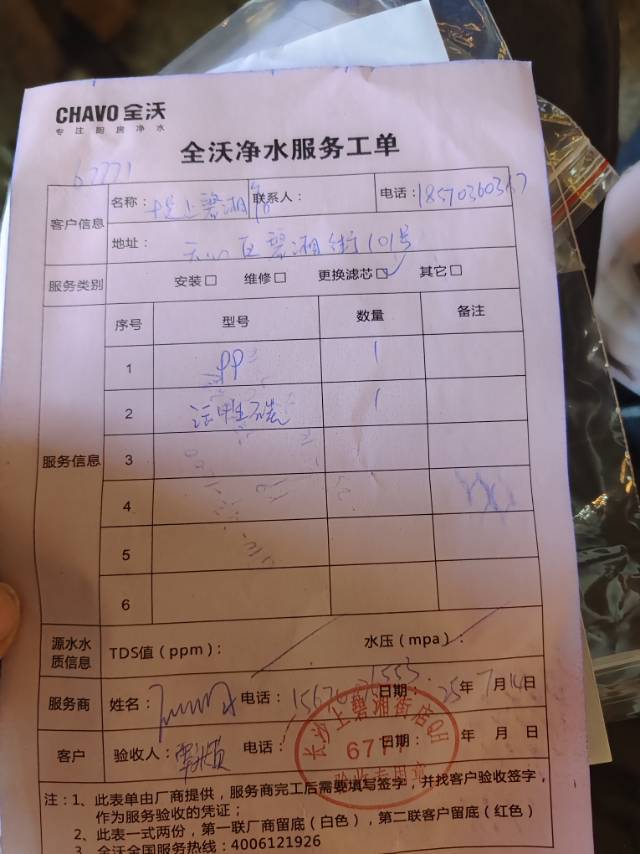 CHAVO 全沃
专注厨房净水
全沃净水服务工单
67771
客户信息
名称：上碧湘街 联系人： 电话：
地址：天心区碧湘街101号
服务类别 安装□ 维修□ 更换滤芯□✓ 其它□
服务信息
序号 型号 数量 备注
1 PP 1
2 活性炭 1
3
4
5
6
源水水质信息 TDS值（ppm）： 水压（mpa）：
服务商 姓名： 电话： 日期：25年7月14日
客户 验收人： 电话： 日期： 年 月 日
长沙上碧湘街店QH
677
验收专用章
注：1、此表单由厂商提供，服务商完工后需要填写签字，并找客户验收签字，
作为服务验收的凭证；
2、此表一式两份，第一联厂商留底（白色），第二联客户留底（红色）
3、全沃全国服务热线：4006121926